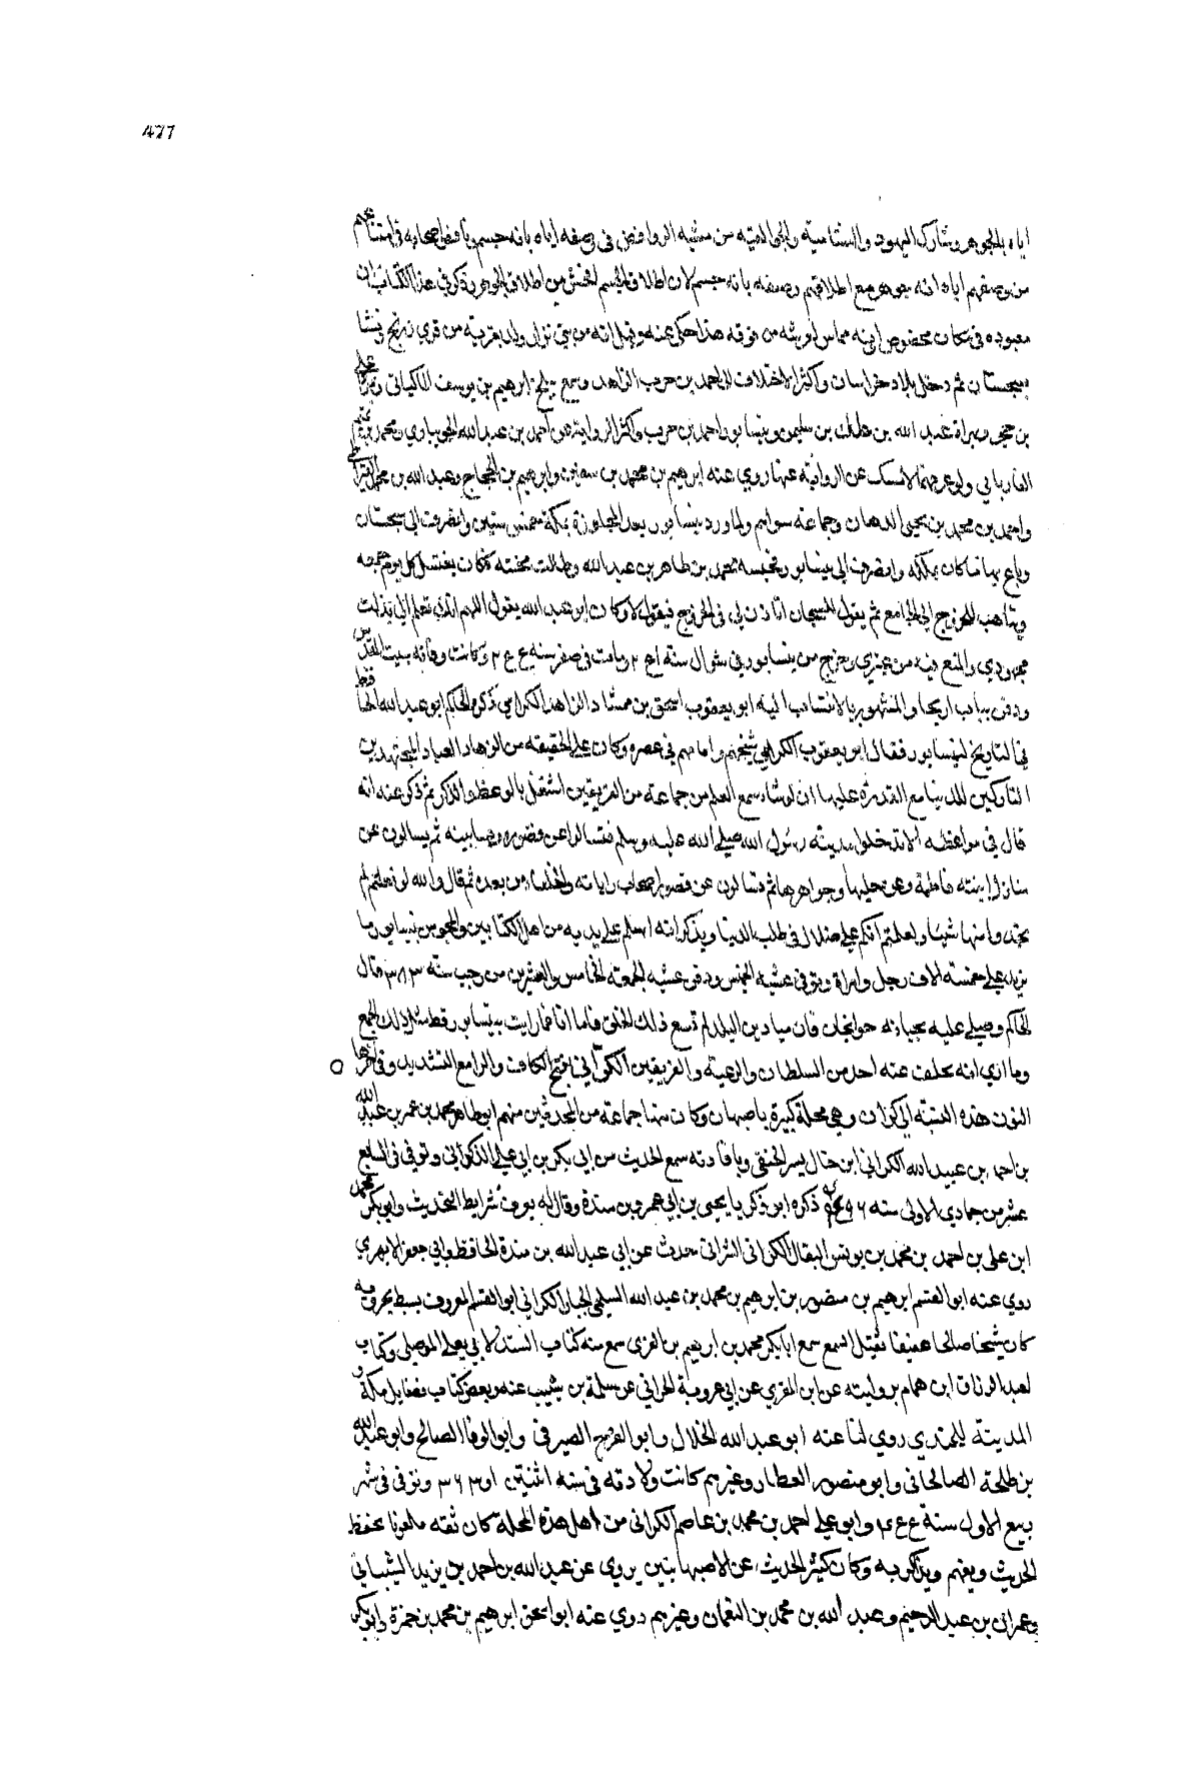 477
اياه بالجوهر وشارك اليهود والهشامية والجواليقيه من مشبهه الروافض في وصفه اياه بانه جسم وناقض اصحابه في امتناعهم
من وصفهم اياه انه جوهر مع اطلاقهم وصفه بانه جسم لان اطلاق الجسم افحش من اطلاق الجوهر وذكر في هذا الكتاب ان
معبوده في مكان مخصوص وانه مماس لعرشه من فوقه هذا حكي عنه وقيل انه من بني نزار ولد بقرية من قري زرنج ونشا
بسجستان ثم دخل بلاد خراسان واكثر الاختلاف الى احمد بن حرب الزاهد وسمع ببلخ ابرهيم بن يوسف الماكياني وعلي
بن حجر وبهراة عبد الله بن مالك بن سليمن وبنيسابور احمد بن حرب واكثر الرواية عن احمد بن عبد الله الجويباري ومحمد بن تميم
الفاريابي ولو عرفهما لامسك عن الرواية عنهما روي عنه ابرهيم بن محمد بن سفين وابرهيم بن الحجاج وعبد الله بن محمد القيراطي
واحمد بن محمد بن يحيى الدهان وجماعة سواهم ولما ورد نيسابور بعد المجاورة بمكة خمس سنين وانصرف الى سجستان
وباع بها ما كان يملكه وانصرف الى نيسابور وحبسه محمد بن طاهر بن عبد الله وطالت محنته فكان يغتسل كل يوم جمعه
ويتاهب للخروج الى الجامع ثم يقول للسجان اتاذن لي في الخروج فيقول لا وكان ابو عبد الله يقول اللهم انك تعلم اني بذلت
مجهودي والمنع فيه من غيري وخرج من نيسابور في شوال سنة ٢٥١ ومات في صفر سنه وكانت وفاته ببيت المقدس
ودفن بباب اريحا والمشهور بالانتساب اليه ابو يعقوب اسحق بن ممشاد الزاهد الكرامي ذكره الحاكم ابو عبد الله الحافظ
في التاريخ لنيسابور فقال ابو يعقوب الكرامي شيخهم وامامهم في عصره وكان على الحقيقه من الزهاد العباد المجتهدين
التاركين للدنيا مع القدرة عليها سمع العلم من جماعة من الفريقين اشتغل بالوعظ والذكر ثم ذكر عنه انه
قال في مواعظه الا تدخلوا مدينة رسول الله صلى الله عليه وسلم فتسالوا عن قصوره وبساتينه ثم يسالون عن
منازل ابنته فاطمة وعن حليها وجواهرها ثم تسالون عن قصور اصحاب راياته والخلفاء من بعده ثم قال والله لو فعلتم لم
تجدوا منها شيئا ولعلمتم انكم على ضلال في طلب الدنيا ويذكر انه اسلم على يديه من اهل الكتابين والمجوس بنيسابور ما
يزيد على خمسة الاف رجل وامراة وتوفي عشية الخميس ودفن عشيه الجمعة الخامس والعشرين من رجب سنة ٣٨٣ قال
الحاكم وصلي عليه فان ميادين البلد لم تسع ذلك الخلق فاما انا فما رايت بنيسابور قط مثل ذلك الجمع
وما اري انه تخلف عنه احد من السلطان والرعية والفريقين الكراني بفتح الكاف والرا مع التشديد وفي اخرها
النون هذه النسبة الى كران وهي محلة كبيرة باصبهان وكان منها جماعة من المحدثين منهم ابو طاهر محمد بن عمر بن عبد الله
بن احمد بن عبيد الله الكراني ابن خال يسر الحنفي وبافادته سمع الحديث من ابي بكر بن ابي علي الذكواني وتوفي في السابع
عشر من جمادي الاولى سنه ذكره ابو زكريا يحيى بن ابي عمرو بن مندة وقال لم يعرف شرايط التحديث وابو بكر محمد
ابن علي بن احمد بن محمد بن يونس البقال الكراني حدث عن ابي عبد الله بن مندة الحافظ وابي جعفر الابهري
روي عنه ابو القسم ابرهيم بن منصور بن ابرهيم بن محمد بن عبد الله السلمي الكراني ابو القسم المعروف بسبط بحرويه
كان شيخا صالحا عفيفا ثقيل السمع سمع ابا بكر محمد بن ابرهيم بن المقري سمع منه كتاب المسند لابي يعلي الموصلي وكتاب
لعبد الرزاق ابن همام بروايته عن ابن المقري عن ابي عروبة الحراني عن سلمة بن شبيب عنه وبعض كتاب فضايل مكة و
المدينة للجندي روي لنا عنه ابو عبد الله الخلال وابو الفرج الصيرفي وابو الوفا الصالح وابو عبد الله
بن طلحة الصالحاني وابو منصور العطار وغيرهم كانت ولادته في سنة اثنتين او ٣٦٣ وتوفي في شهر
ربيع الاول سنة وابو علي احمد بن محمد بن عاصم الكراني من اهل هذه المحلة كان ثقه مامونا يحفظ
الحديث ويفهم ويذاكر به وكان كثير الحديث عن الاصبهانيين يروي عن عبد الله بن احمد بن يزيد الشيباني
وعمران بن عبد الرحيم وعبد الله بن محمد بن النعمان وغيرهم روي عنه ابو اسحق ابرهيم بن محمد بن حمزة وابو بكر